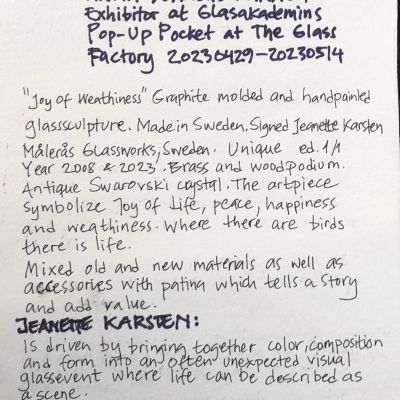 Exhibitor at Glasakademins
Pop-Up Pocket at The Glass
Factory 20230429-20230514
"Joy of Weathiness" Graphite molded and handpainted
glasssculpture. Made in Sweden. Signed Jeanette Karsten
Målerås Glassworks, Sweden. Unique ed. 1/1
Year 2008 & 2023. Brass and woodpodium.
Antique Swarovski crystal. The artpiece
symbolize Joy of Life, peace, happiness
and weathiness. Where there are birds
there is life.
Mixed old and new materials as well as
accessories with patina which tells a story
and add value.
JEANETTE KARSTEN:
Is driven by bringing together color, composition
and form into an often unexpected visual
glassevent where life can be described as
a scene.